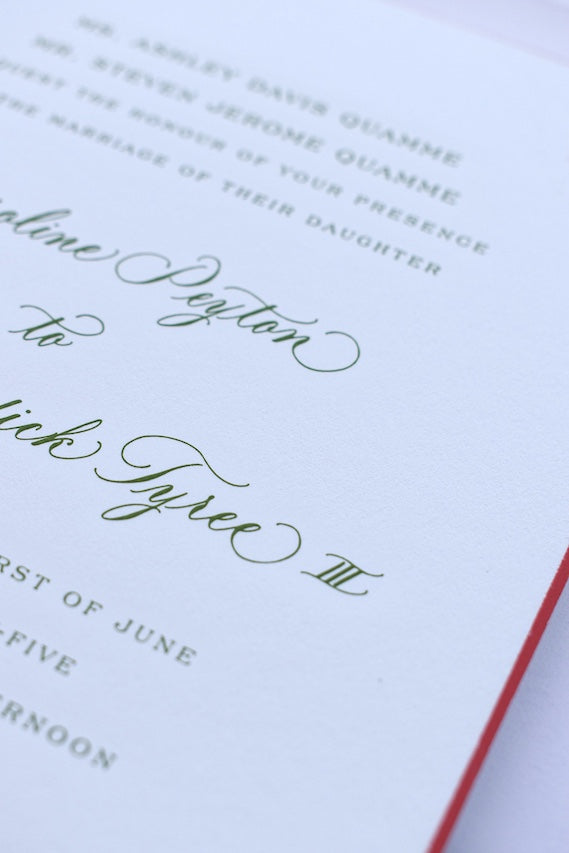 MR. ASHLEY DAVIS QUAMME
MR. STEVEN JEROME QUAMME
THE HONOUR OF YOUR PRESENCE
THE MARRIAGE OF THEIR DAUGHTER
oline Peyton
to
lick Tyree III
RST OF JUNE
-FIVE
ERNOON